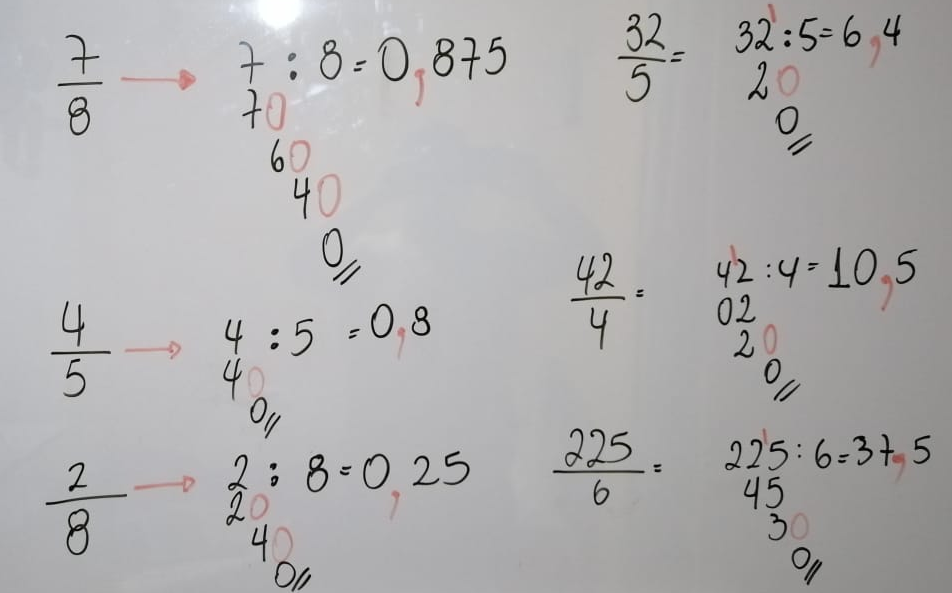 7/8 → 7 : 8 = 0,875
70
60
40
0//
4/5 → 4 : 5 = 0,8
40
0//
2/8 → 2 : 8 = 0,25
20
40
0//
32/5 = 32' : 5 = 6,4
20
0//
42/4 = 4'2 : 4 = 10,5
02
20
0//
225/6 = 22'5 : 6 = 37,5
45
30
0//